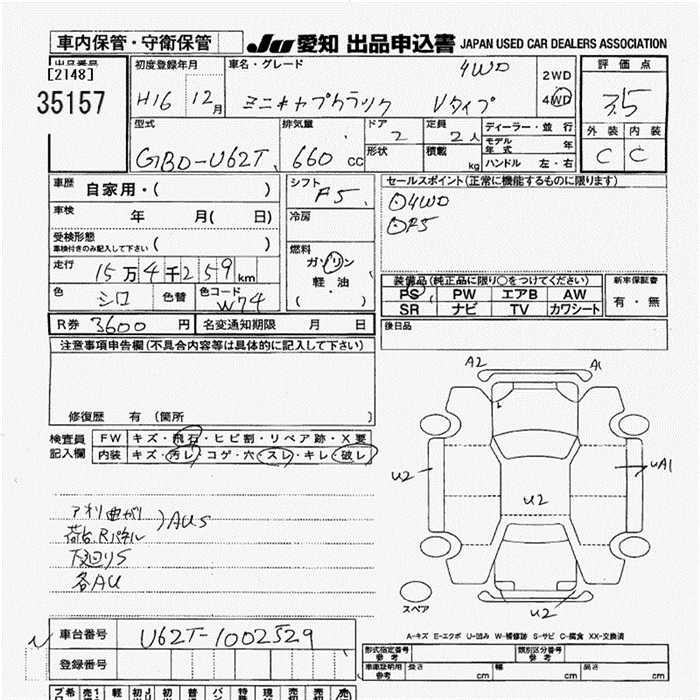 車内保管・守衛保管 JU 愛知 出品申込書 JAPAN USED CAR DEALERS ASSOCIATION
出品番号 初度登録年月 車名・グレード 4WD 2WD 評価点
[2148]
35157 H16 12月 ミニキャブトラック Vタイプ 4WD 3.5
型式 排気量 ドア 定員 ディーラー・並行 外装 内装
GBD-U62T 660cc 2 2人 モデル年式 年 C C
形状 積載 kg ハンドル 左・右
車歴 自家用・( ) シフト F5 セールスポイント(正常に機能するものに限ります)
車検 年 月( 日) 冷房 ○4WD
受検形態 ○F5
車検付きのみ記入して下さい ( ) 燃料
走行 15万4千259km ガソリン
軽油
( )
装備品(純正品に限り○をつけてください) 新車保証書
色 シロ 色替 色コード W74 PS PW エアB AW 有・無
SR ナビ TV カワシート
R券 3600円 名変通知期限 月 日 後日品
注意事項申告欄(不具合内容等は具体的に記入して下さい)
修復歴 有(箇所 )
検査員 FW キズ・飛石・ヒビ割・リペア跡・X要
記入欄 内装 キズ・汚レ・コゲ・穴・スレ・キレ・破レ
アオリ曲がり
荷台Rパネル )AUS
下廻りS
各AU
A2 A1
U2 U2 UA1
U2
スペア
A-キズ E-エクボ U-凹み W-補修跡 S-サビ C-腐食 XX-交換済
車台番号 U62T-1002529
登録番号
形式指定番号 参考 類別区分番号 参考
車検証明用 参考 長さ cm 幅 cm 高さ cm